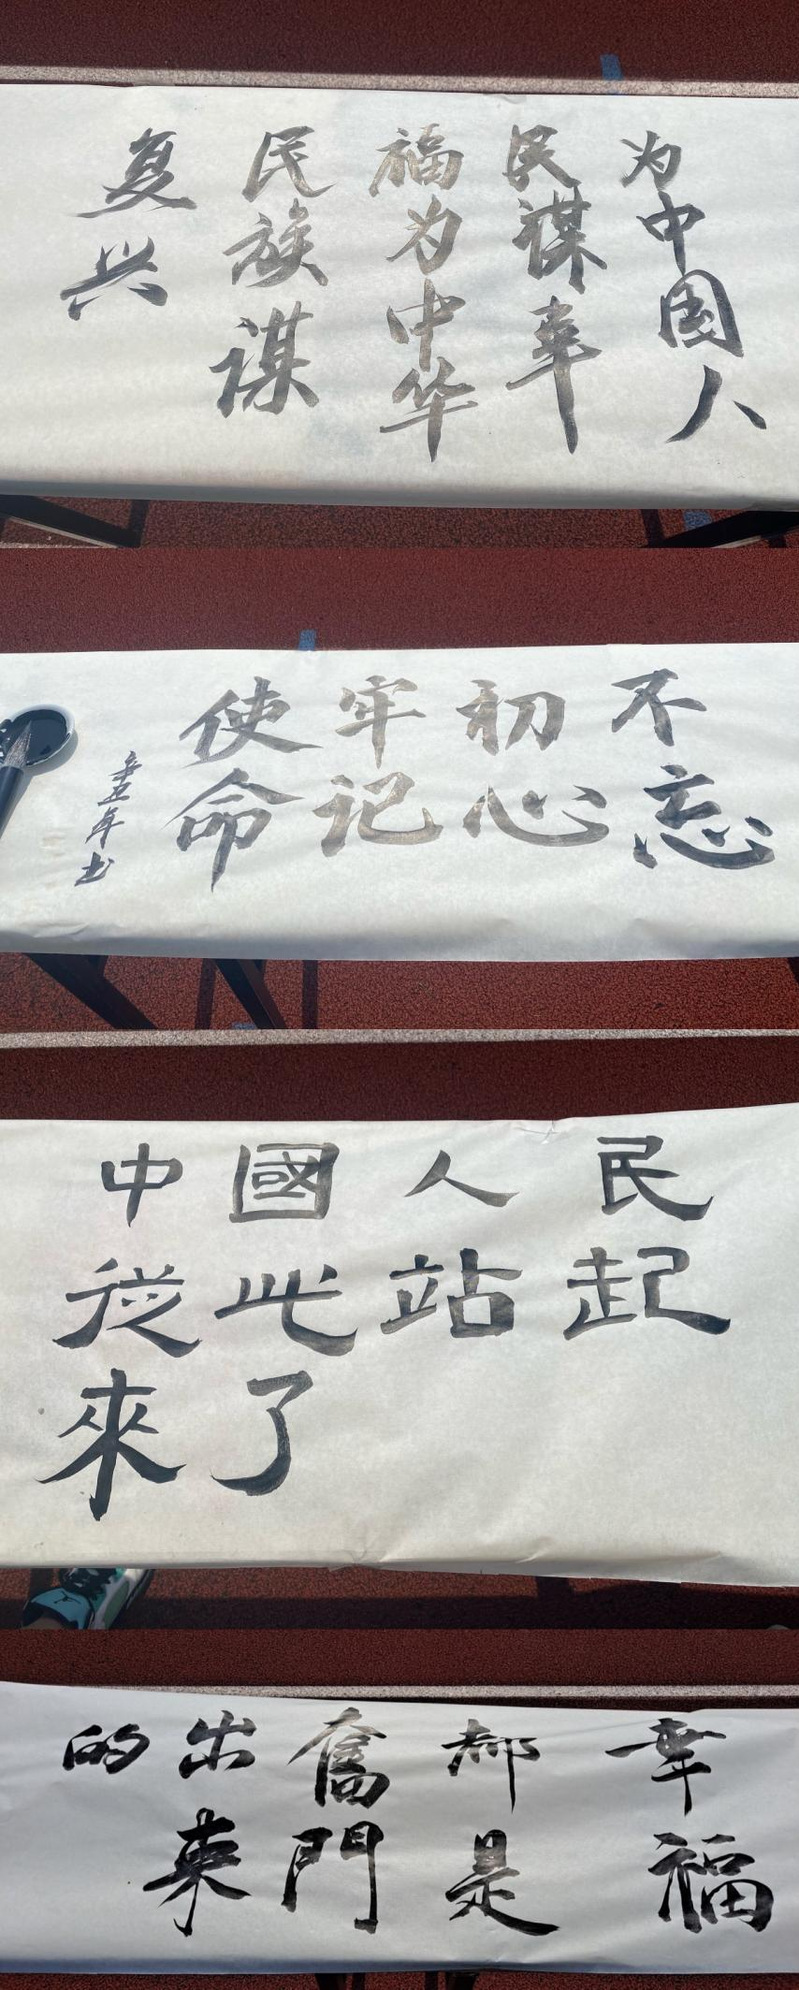 为中国人
民谋幸
福为中华
民族谋
复兴
不忘
初心
牢记
使命
辛丑年书
中國人民
從此站起
來了
幸福
都是
奮鬥
出來
的